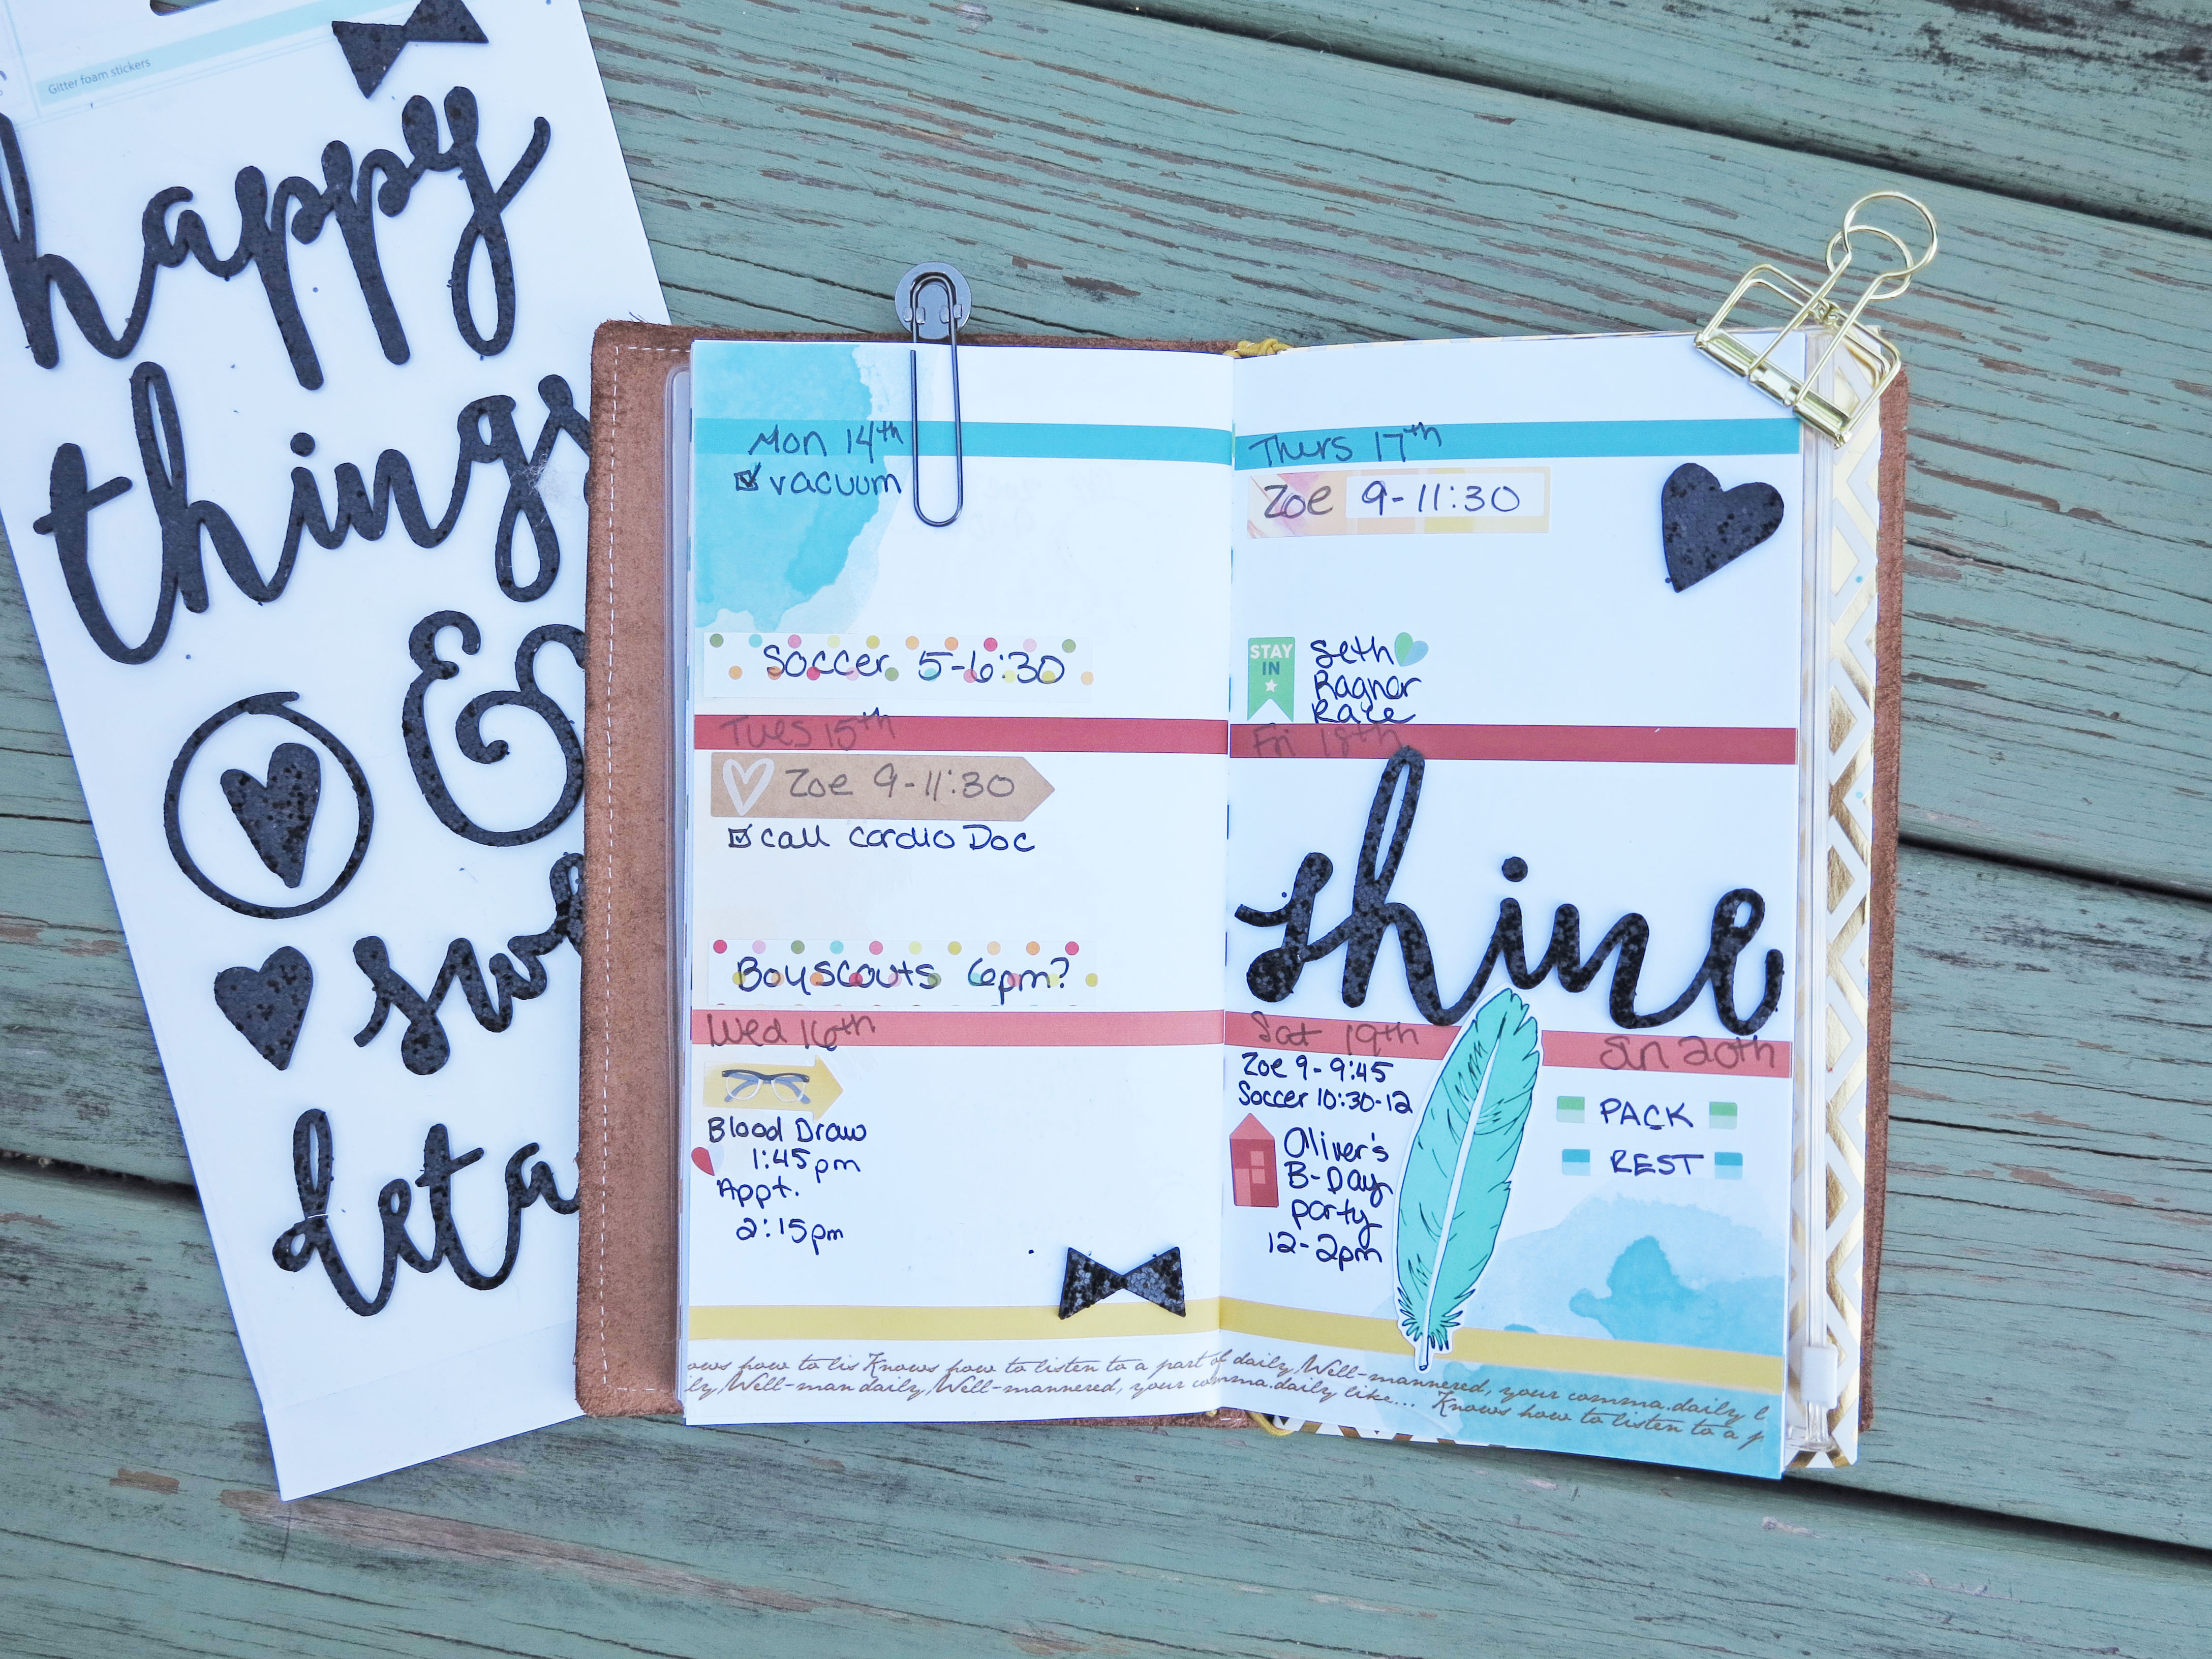 Glitter foam stickers
happy
things
&
Mon 14th
vacuum
Soccer 5-6:30
Tues 15th
Zoe 9-11:30
call cardio Doc
Boyscouts 6pm?
Wed 16th
Blood Draw
1:45pm
Appt.
2:15pm
Thurs 17th
Zoe 9-11:30
STAY
IN
Seth
Ragnar
Race
Fri 18th
shine
Sat 19th
Zoe 9-9:45
Soccer 10:30-12
Oliver's
B-Day
party
12-2pm
Sun 20th
PACK
REST
ows how to lis Knows how to listen to a part of daily, Well-mannered, your comma.daily l
ly, Well-man daily, Well-mannered, your comma.daily like... Knows how to listen to a p